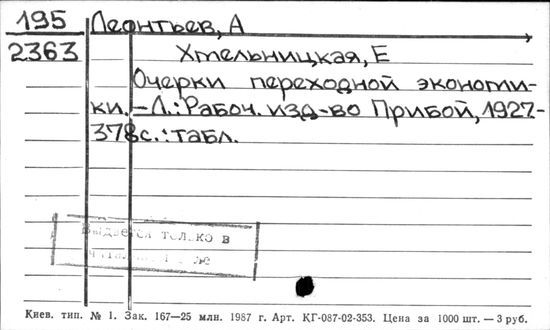 195 Леонтьев, А
2363 Хмельницкая, Е
Очерки переходной экономи-
ки. – Л.: Рабоч. изд-во Прибой, 1927-
378с.: табл.
Выдается только в
Киев. тип. № 1. Зак. 167—25 млн. 1987 г. Арт. КГ-087-02-353. Цена за 1000 шт. — 3 руб.